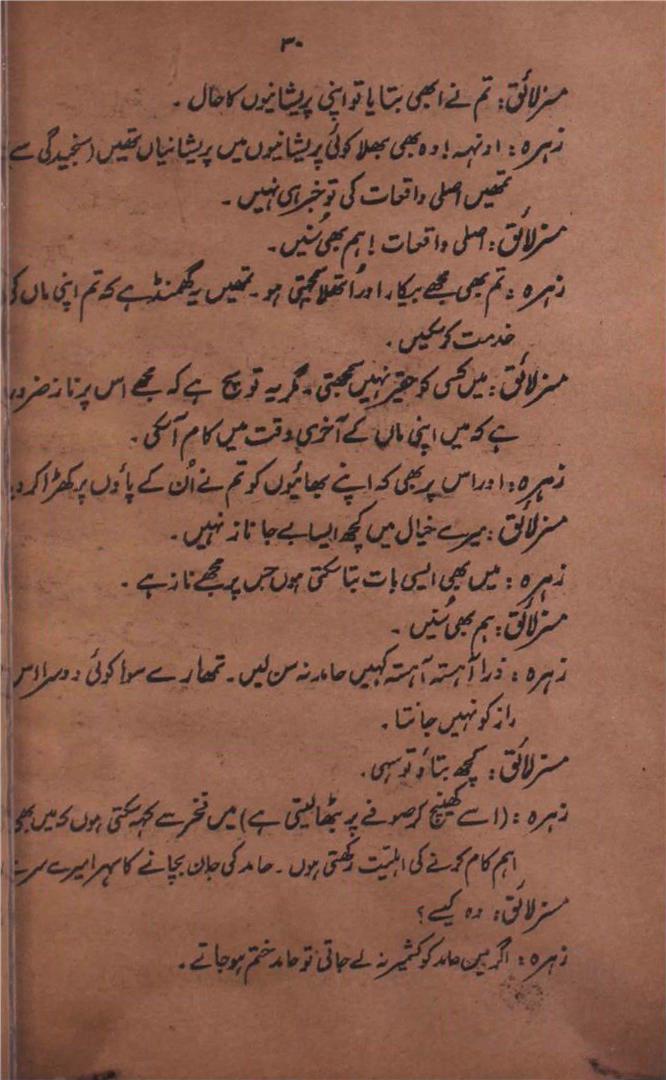 ۳۰
مسز لائق: تم نے ابھی بتایا تو اپنی پریشانیوں کا حال۔
زہرہ: اونہہ! وہ بھی بھلا کوئی پریشانیوں میں پریشانیاں تھیں (سنجیدگی سے
تمھیں اصلی واقعات کی تو خبر ہی نہیں۔
مسز لائق: اصلی واقعات! ہم بھی سُنیں۔
زہرہ: تم بھی مجھے بیکار اور اُتھلا سمجھتی ہو۔ تمھیں یہ گھمنڈ ہے کہ تم اپنی ماں کی
خدمت کر سکیں۔
مسز لائق: میں کسی کو حقیر نہیں سمجھتی۔ مگر یہ تو سچ ہے کہ مجھے اس پر ناز ضرور
ہے کہ میں اپنی ماں کے آخری وقت میں کام آ سکی۔
زہرہ: اور اس پر بھی کہ اپنے بھائیوں کو تم نے اُن کے پاؤں پر کھڑا کر دیا
مسز لائق: میرے خیال میں کچھ ایسا بے جا ناز نہیں۔
زہرہ: میں بھی ایسی بات بتا سکتی ہوں جس پر مجھے ناز ہے۔
مسز لائق: ہم بھی سُنیں۔
زہرہ: ذرا آہستہ آہستہ کہیں حامد نہ سن لیں۔ تمھارے سوا کوئی دوسرا اس
راز کو نہیں جانتا۔
مسز لائق: کچھ بتاؤ تو سہی۔
زہرہ: (اسے کھینچ کر صوفے پر بٹھا لیتی ہے) میں فخر سے کہہ سکتی ہوں کہ میں بھی
اہم کام کرنے کی اہلیّت رکھتی ہوں۔ حامد کی جان بچانے کا سہرا میرے سر
مسز لائق: وہ کیسے؟
زہرہ: اگر میں حامد کو کشمیر نہ لے جاتی تو حامد ختم ہو جاتے۔